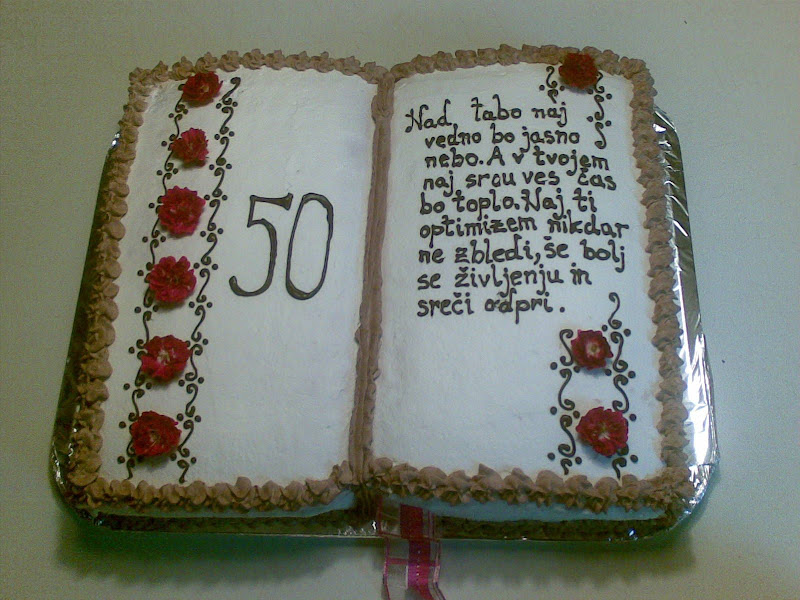 50
Nad tabo naj
vedno bo jasno
nebo. A v tvojem
naj srcu ves čas
bo toplo. Naj ti
optimizem nikdar
ne zbledi, še bolj
se življenju in
sreči odpri.